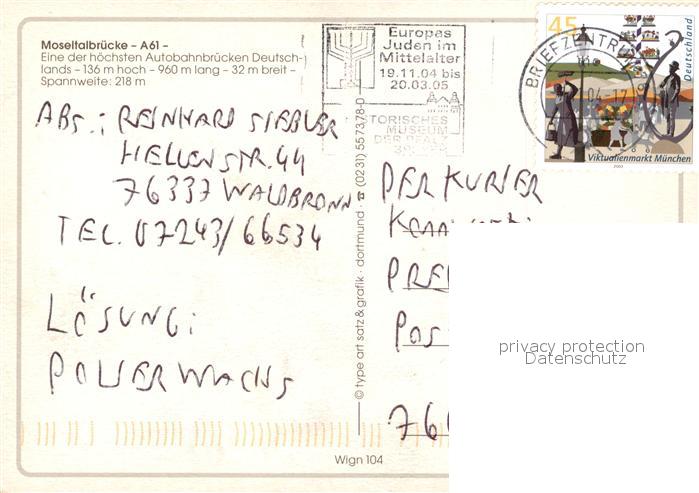 Moseltalbrücke – A61 –
Eine der höchsten Autobahnbrücken Deutsch-
lands – 136 m hoch – 960 m lang – 32 m breit –
Spannweite: 218 m
Europas
Juden im
Mittelalter
19.11.04 bis
20.03.05
HISTORISCHES
MUSEUM
DER PFALZ
BRIEFZENTRUM
45
Deutschland
Viktualienmarkt München
2003
ABS.: REINHARD SIEBLER
HELLENSTR. 44
76337 WALDBRONN
TEL. 07243/66534
LÖSUNG:
POWERWACHS
© type art satz & grafik · dortmund · ☎ (0231) 557378-0
DER KURIER
PRE
POS
76
privacy protection
Datenschutz
Wign 104